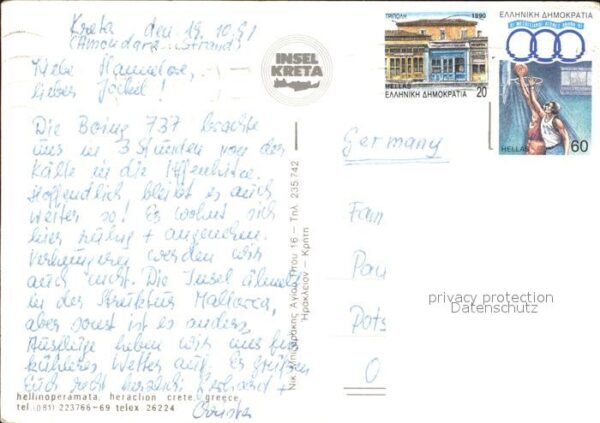 Kreta den 19.10.91
(Amoudara-Strand)
Liebe Hannelore,
lieber Jockel!
Die Boing 737 brachte
uns in 3 Stunden von der
Kälte in die Affenhitze.
Hoffentlich bleibt es auch
weiter so! Es wohnt sich
hier ruhig + angenehm.
Verhungern werden wir
auch nicht. Die Insel ähnelt
in der Struktur Mallorca,
aber sonst ist es anders.
Ausflüge heben wir uns für
kühleres Wetter auf. Es grüßen
Euch recht herzlich +
INSEL
KRETA
ΤΡΙΠΟΛΗ 1890
HELLAS 20
ΕΛΛΗΝΙΚΗ ΔΗΜΟΚΡΑΤΙΑ
ΕΛΛΗΝΙΚΗ ΔΗΜΟΚΡΑΤΙΑ
HELLAS 60
Germany
Fam
Pau
Pots
O
privacy protection
Datenschutz
Αγίου Τίτου 16 – Τηλ. 235.742
Ηράκλειον – Κρήτη
hellinoperamata, heraclion crete, greece
tel (081) 223766-69 telex 26224